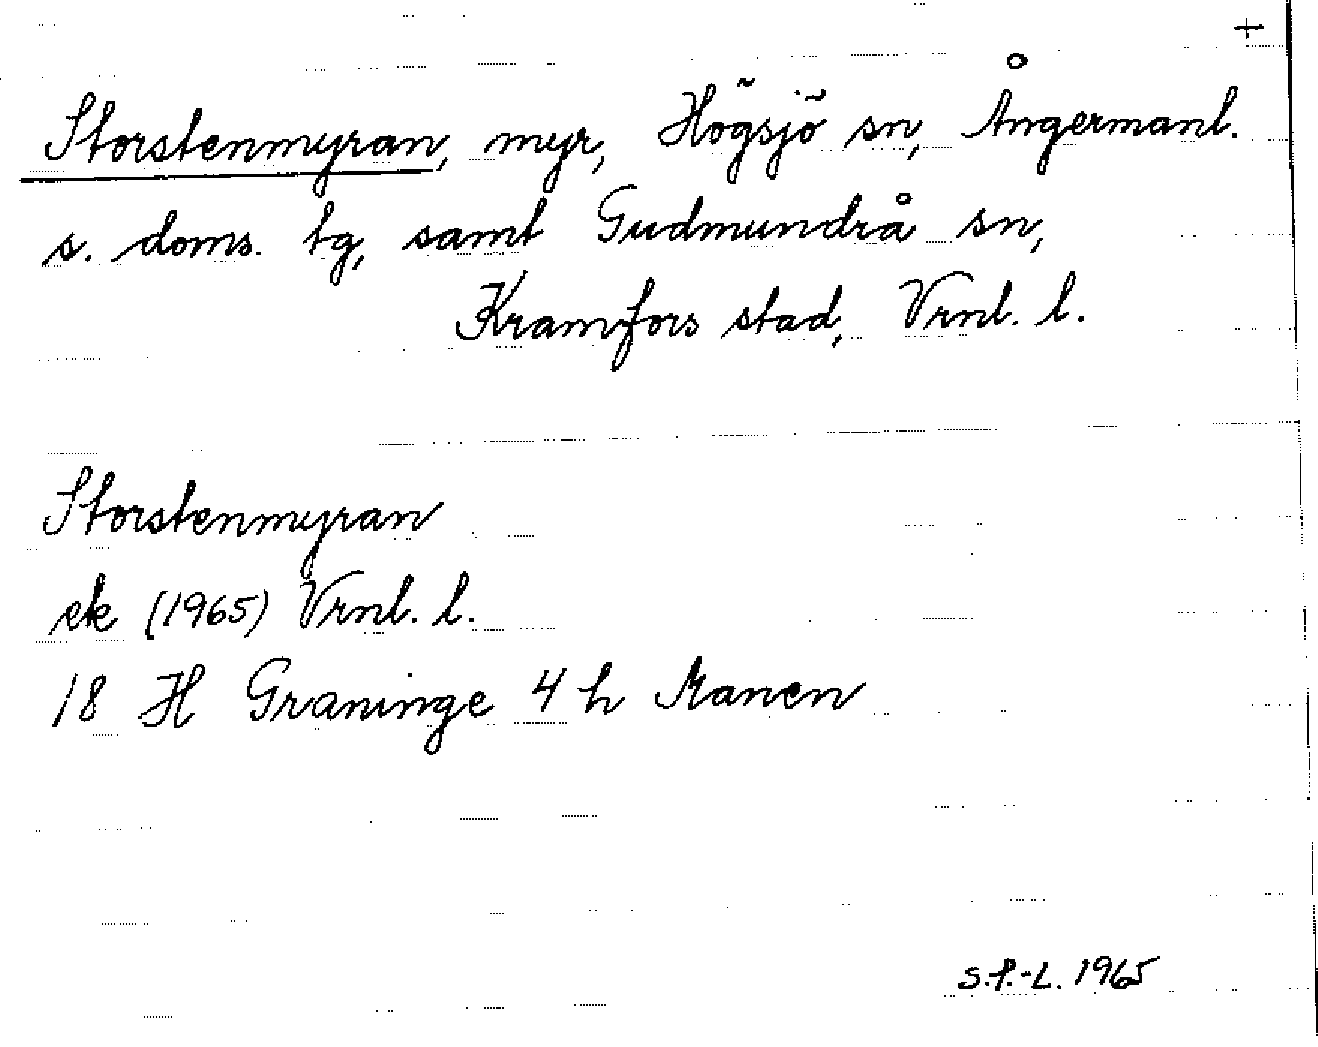 +
Storstenmyran, myr, Högsjö sn, Ångermanl.
s. doms. tg, samt Gudmundrå sn,
Kramfors stad, Vrnl. l.
Storstenmyran
ek (1965) Vrnl. l.
18 H Graninge 4 h Manen
S.P.-L. 1965